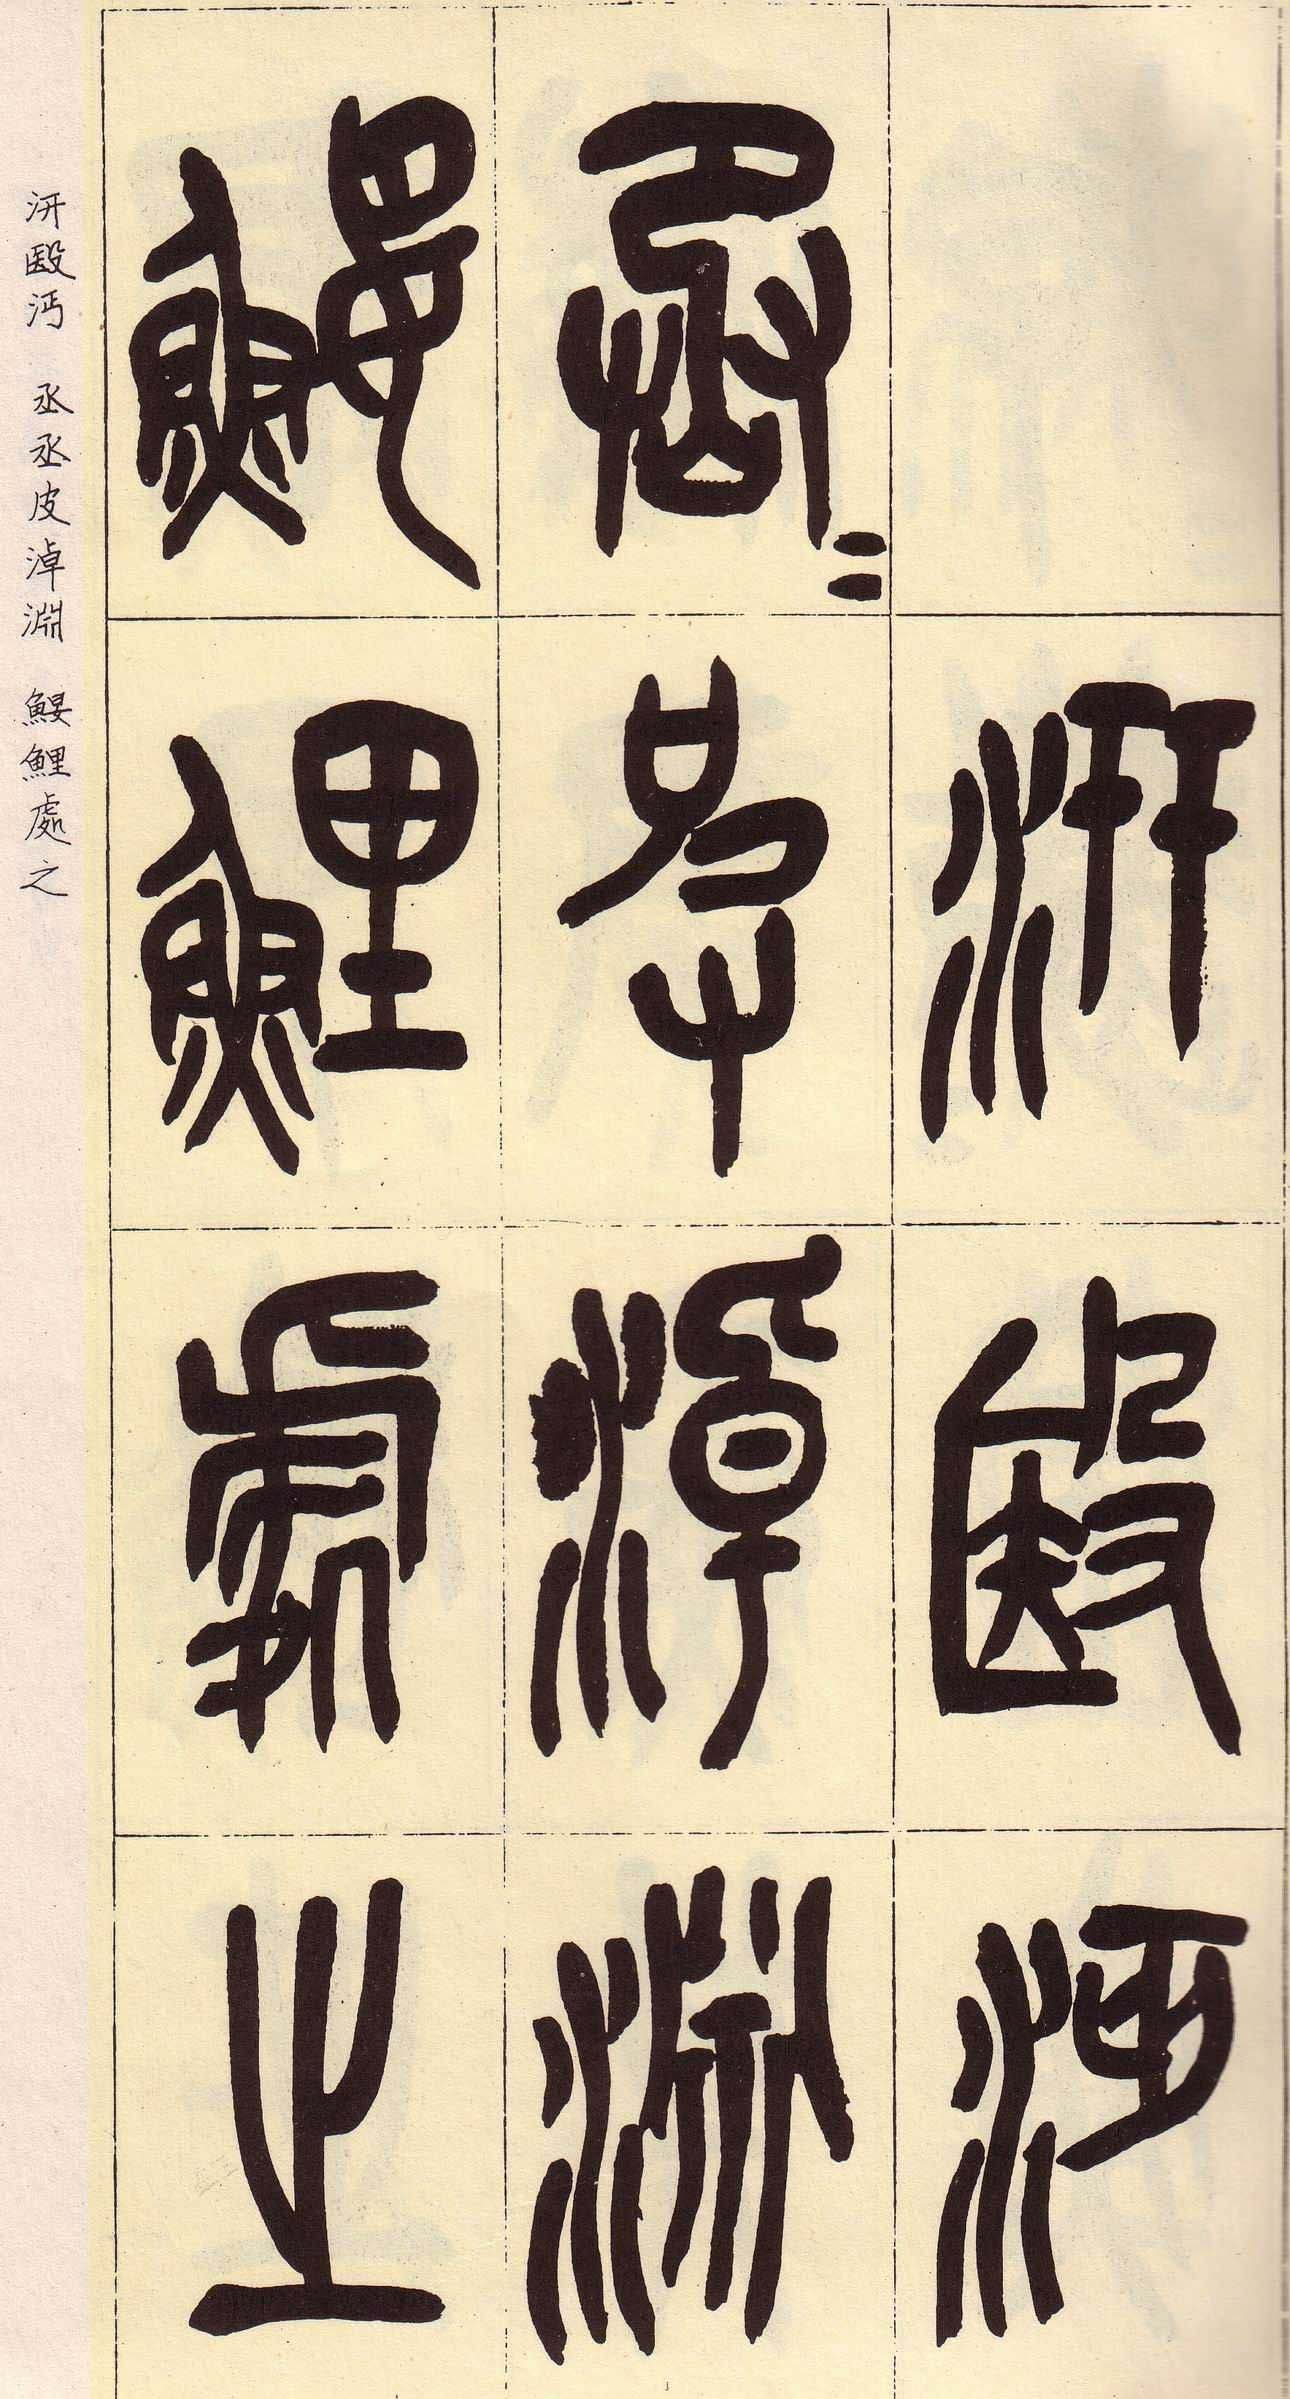 汧殹沔
丞=皮淖淵
鰋鯉處之
汧殹沔　丞丞皮淖淵　鰋鯉處之